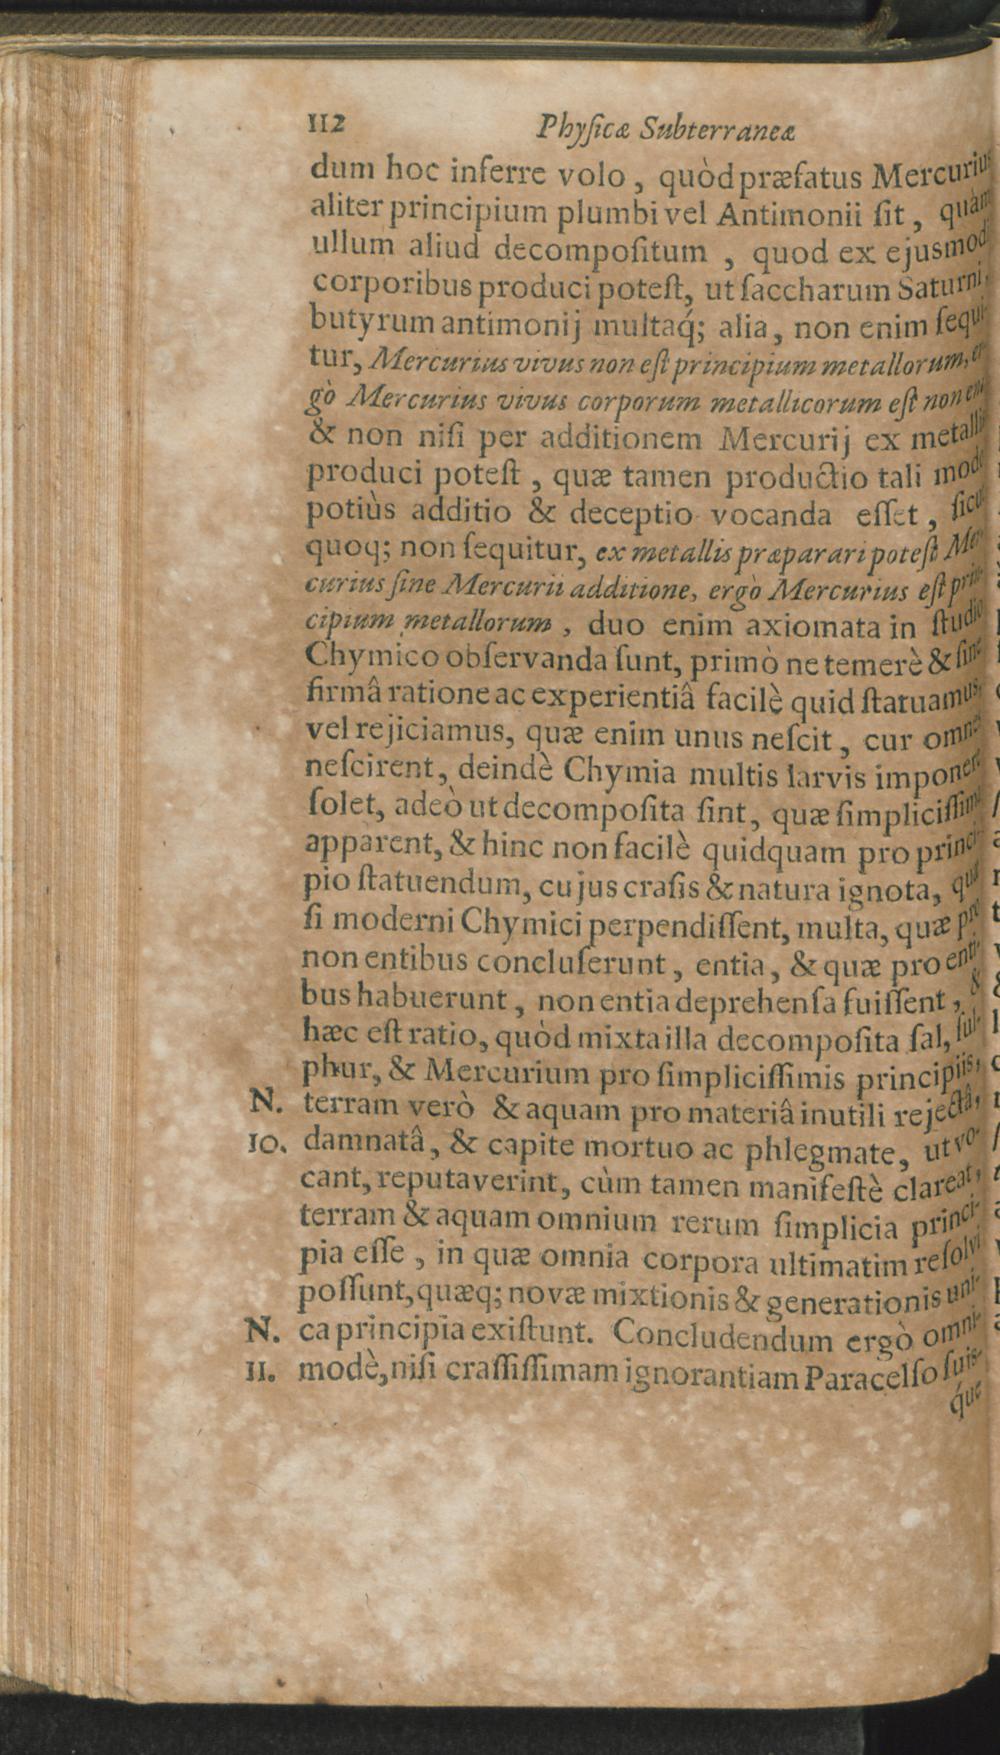 112 Phyſicæ Subterraneæ
dum hoc inferre volo, quòd præfatus Mercurius
aliter principium plumbi vel Antimonii ſit, quàm
ullum aliud decompoſitum, quod ex ejusmodi
corporibus produci poteſt, ut ſaccharum Saturni,
butyrum antimonij multaq́; alia, non enim ſequi-
tur, Mercurius vivus non eſt principium metallorum, er-
gò Mercurius vivus corporum metallicorum eſt non ens
& non niſi per additionem Mercurij ex metallis
produci poteſt, quæ tamen productio tali modo
potiùs additio & deceptio vocanda eſſet, ſicut
quoq; non ſequitur, ex metallis præparari poteſt Mer-
curius ſine Mercurii additione, ergò Mercurius eſt prin-
cipium metallorum, duo enim axiomata in ſtudio
Chymico obſervanda ſunt, primò ne temerè & ſine
firmâ ratione ac experientiâ facilè quid ſtatuamus,
vel rejiciamus, quæ enim unus neſcit, cur omnes
neſcirent, deindè Chymia multis larvis imponere
ſolet, adeò ut decompoſita ſint, quæ ſimpliciſſima
apparent, & hinc non facilè quidquam pro princi-
pio ſtatuendum, cujus craſis & natura ignota,
ſi moderni Chymici perpendiſſent, multa, quæ pro
non entibus concluſerunt, entia, & quæ pro enti-
bus habuerunt, non entia deprehenſa fuiſſent, &
hæc eſt ratio, quòd mixta illa decompoſita ſal, ſul-
phur, & Mercurium pro ſimpliciſſimis principiis,
N. terram verò & aquam pro materiâ inutili rejectâ,
10. damnatâ, & capite mortuo ac phlegmate, ut vo-
cant, reputaverint, cùm tamen manifeſtè clareat,
terram & aquam omnium rerum ſimplicia princi-
pia eſſe, in quæ omnia corpora ultimatim reſolvi
poſſunt, quæq; novæ mixtionis & generationis uni-
N. ca principia exiſtunt. Concludendum ergò omni-
11. modè, niſi craſſiſſimam ignorantiam Paracelſo ſuis-
q́ue